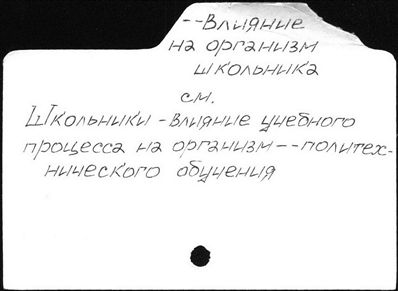 --Влияние
на организм
школьника
см.
Школьники - Влияние учебного
процесса на организм -- политех-
нического обучения